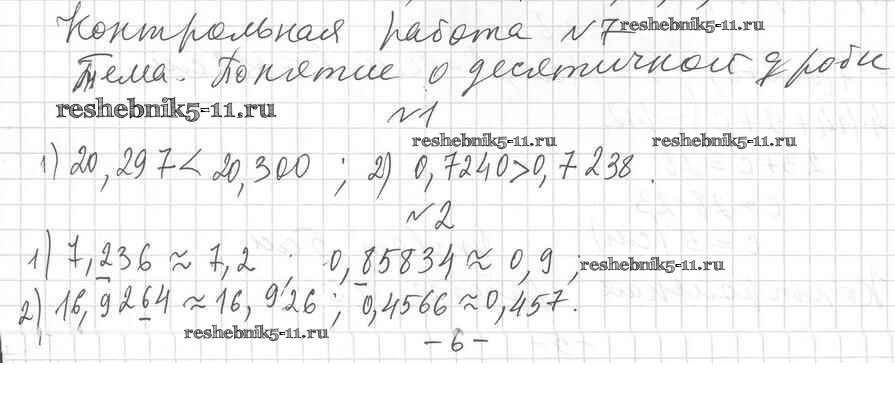 Контрольная работа №7 reshebnik5-11.ru
Тема. Понятие о десятичной дроби
reshebnik5-11.ru
№1
reshebnik5-11.ru reshebnik5-11.ru
1) 20,297 < 20,300 ; 2) 0,7240 > 0,7238 .
№2
1) 7,236 ≈ 7,2 ; 0,85834 ≈ 0,9 , reshebnik5-11.ru
2) 16,9264 ≈ 16,926 ; 0,4566 ≈ 0,457.
reshebnik5-11.ru
- 6 -